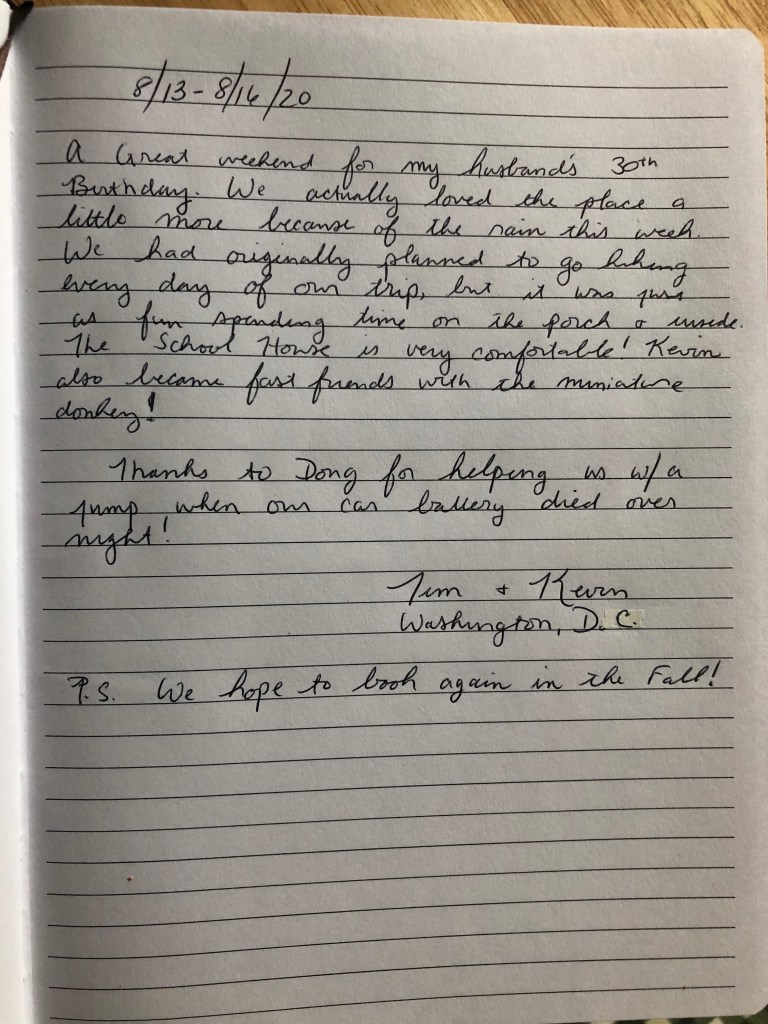 8/13 - 8/16/20
A Great weekend for my husband's 30th
Birthday. We actually loved the place a
little more because of the rain this week.
We had originally planned to go hiking
every day of our trip, but it was just
as fun spending time on the porch & inside.
The School House is very comfortable! Kevin
also became fast friends with the miniature
donkey!
Thanks to Doug for helping us w/ a
jump when our car battery died over
night!
Tim + Kevin
Washington, D.C.
P.S. We hope to book again in the Fall!